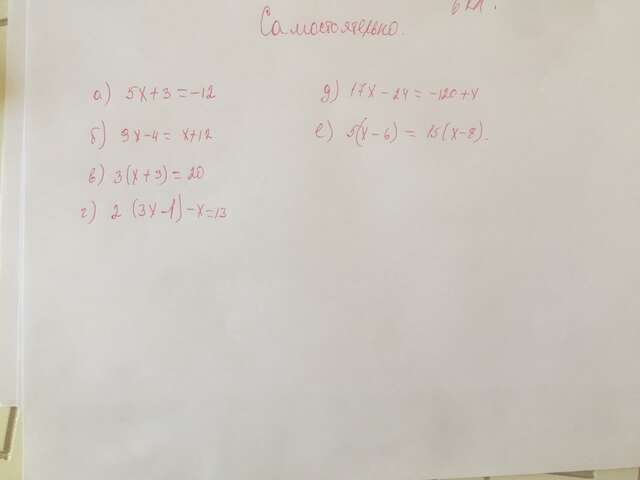 6 кл.
Самостоятельно.
а) 5x+3=-12
б) 9x-4= x+12
в) 3(x+3)=20
г) 2 (3x-1)-x=13
д) 17x-24=-120+x
е) 5(x-6) = 15(x-8).